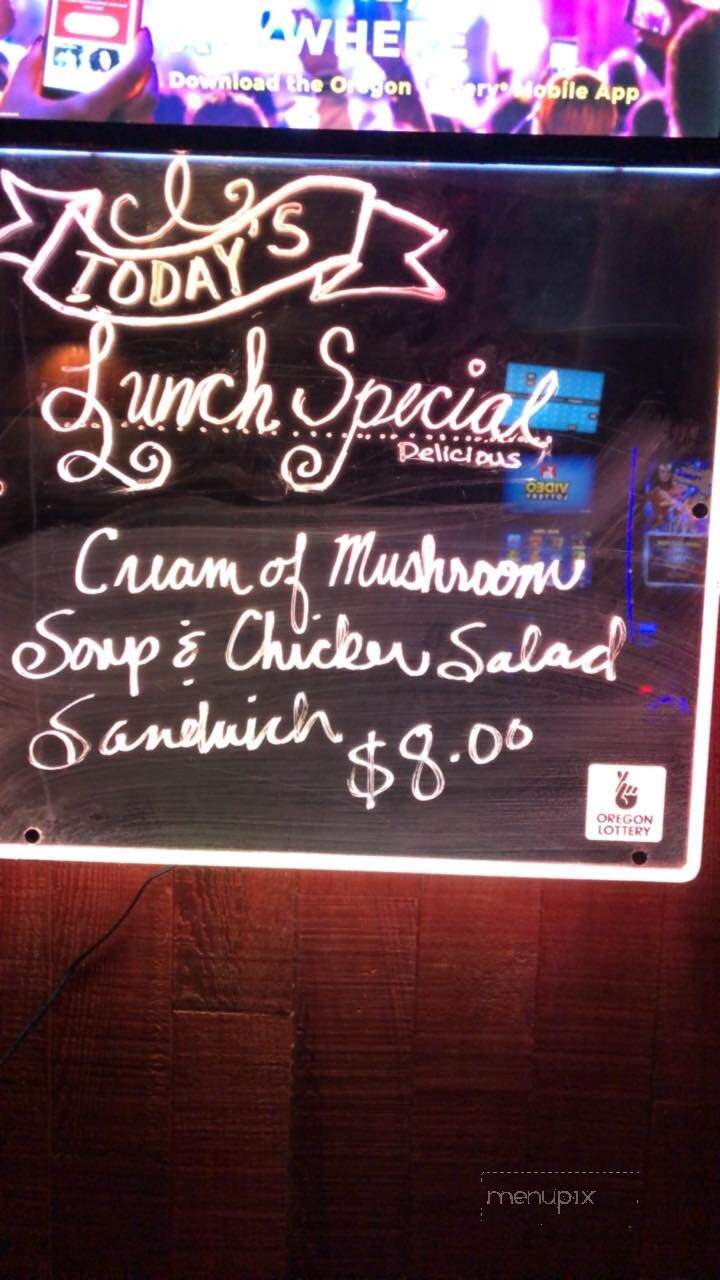 WHERE
Download the Oregon Lottery® Mobile App
TODAY'S
Lunch Special
Delicious
Cream of Mushroom
Soup & Chicken Salad
Sandwich $8.00
OREGON
LOTTERY
menupix